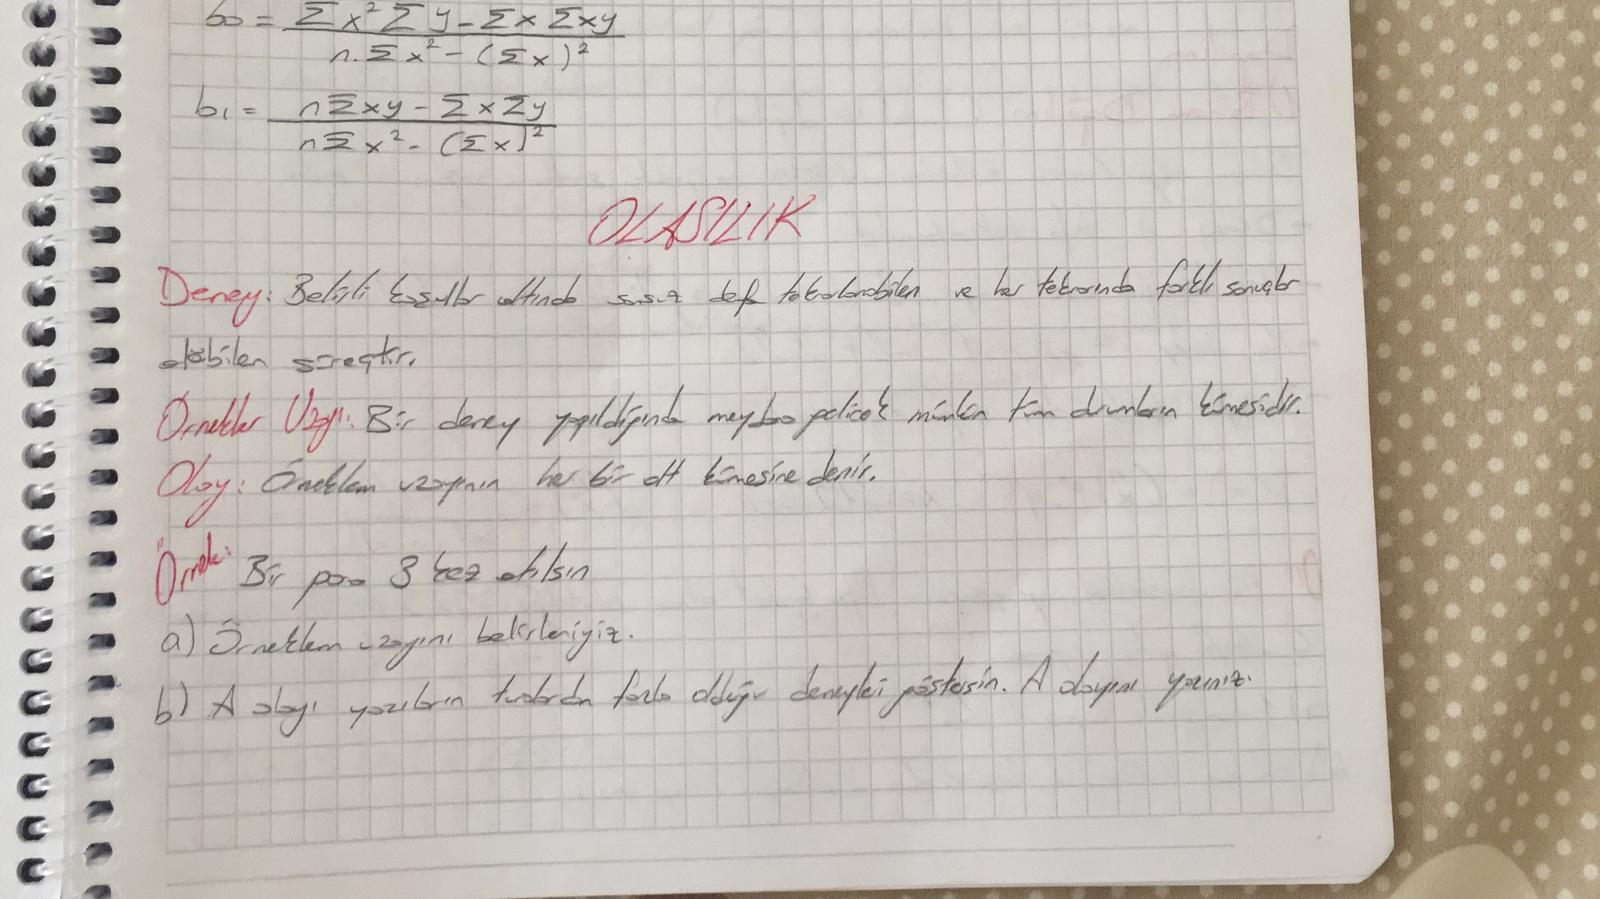 b0 = Σx² Σy - Σx Σxy / n.Σx² - (Σx)²
b1 = nΣxy - ΣxΣy / nΣx² - (Σx)²
OLASILIK
Deney: Belirli koşullar altında sonsuz defa tekrarlanabilen ve her tekrarında farklı sonuçlar
alabilen süreçtir.
Örnekler Uzayı: Bir deney yapıldığında meydana gelicek mümkün tüm durumların kümesidir.
Olay: Örneklem uzayının her bir alt kümesine denir.
Örnek: Bir para 3 kez atılsın
a) Örneklem uzayını belirleyiniz.
b) A olayı yazıların turalardan fazla olduğu deneyleri göstersin. A olayını yazınız.